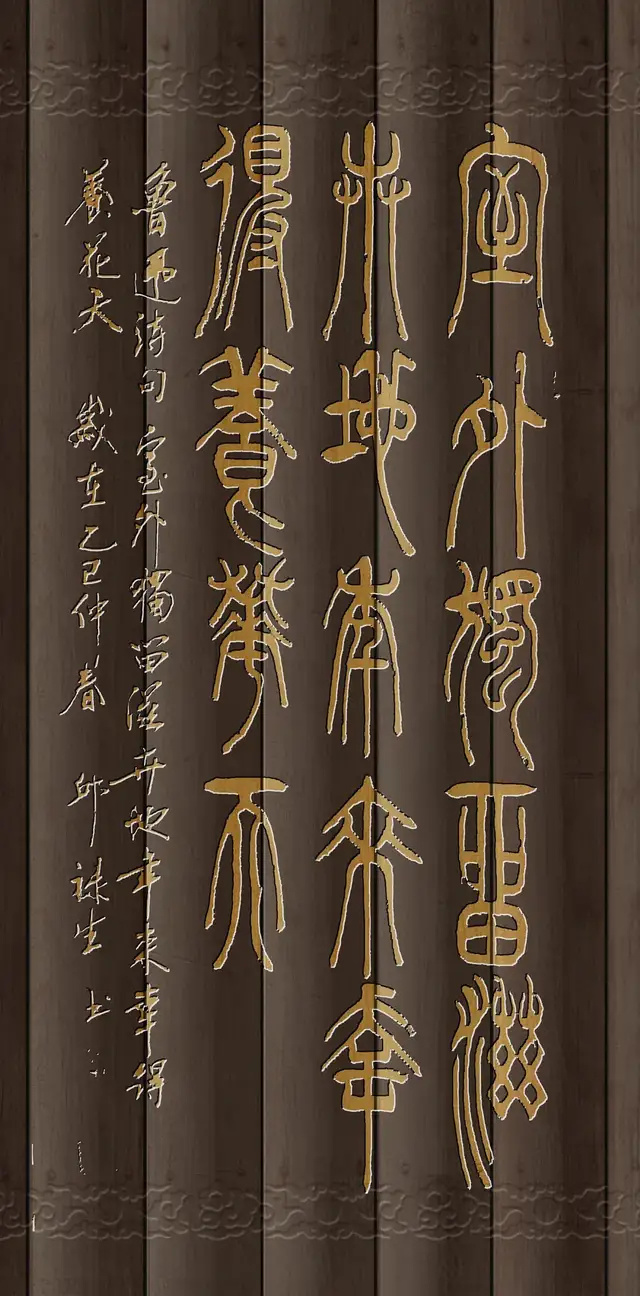 室外獨畱滋
卉地年來幸
得養華天
魯迅詩句 室外獨留滋卉地年來幸得
養花天 歲在乙巳仲春 邱 生 书